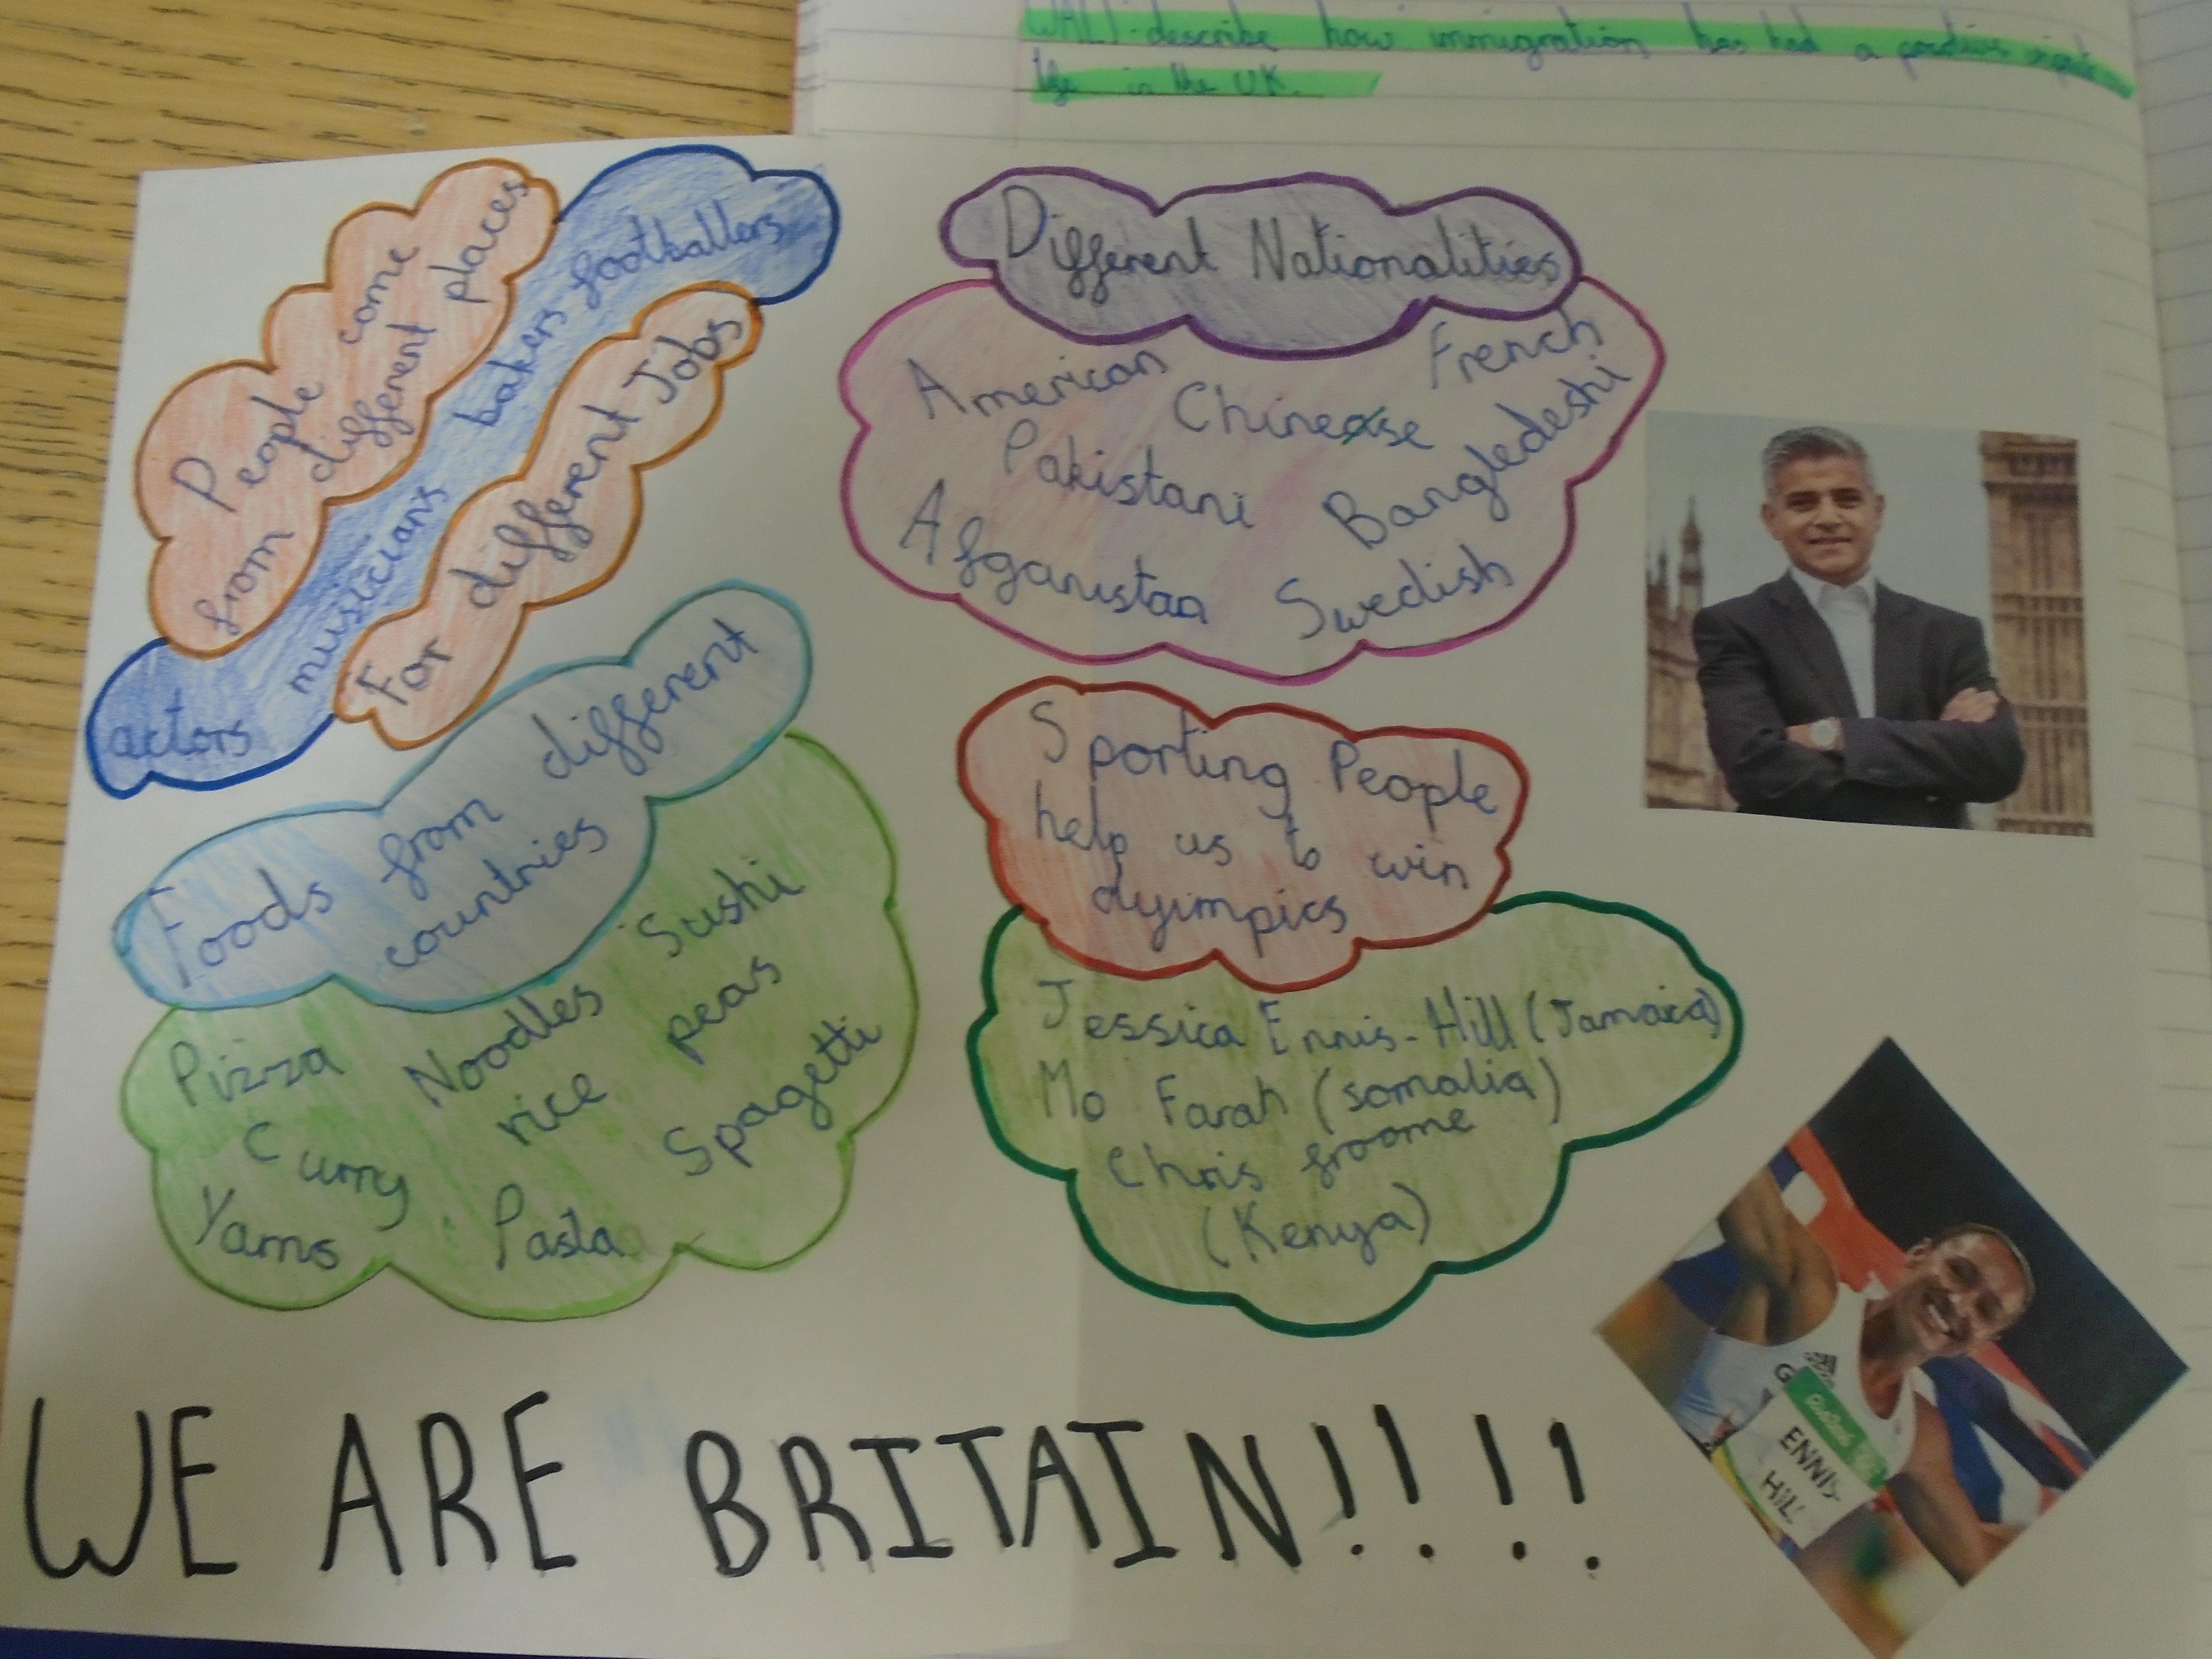 WALT: describe how immigration has had a positive
life in the UK.
People come
from different places
actors musicians bakers footballers
For different Jobs
Different Nationalities
American Chinease French
Pakistani Bangledeshi
Afganistan Swedish
Foods from different
countries
Pizza Noodles Sushi
Curry rice peas
Yams Pasta Spagetti
Sporting People
help us to win
olyimpics
Jessica Ennis-Hill (Jamaica)
Mo Farah (somalia)
Chris froome
(Kenya)
ENNIS-
HILL
WE ARE BRITAIN!!!!